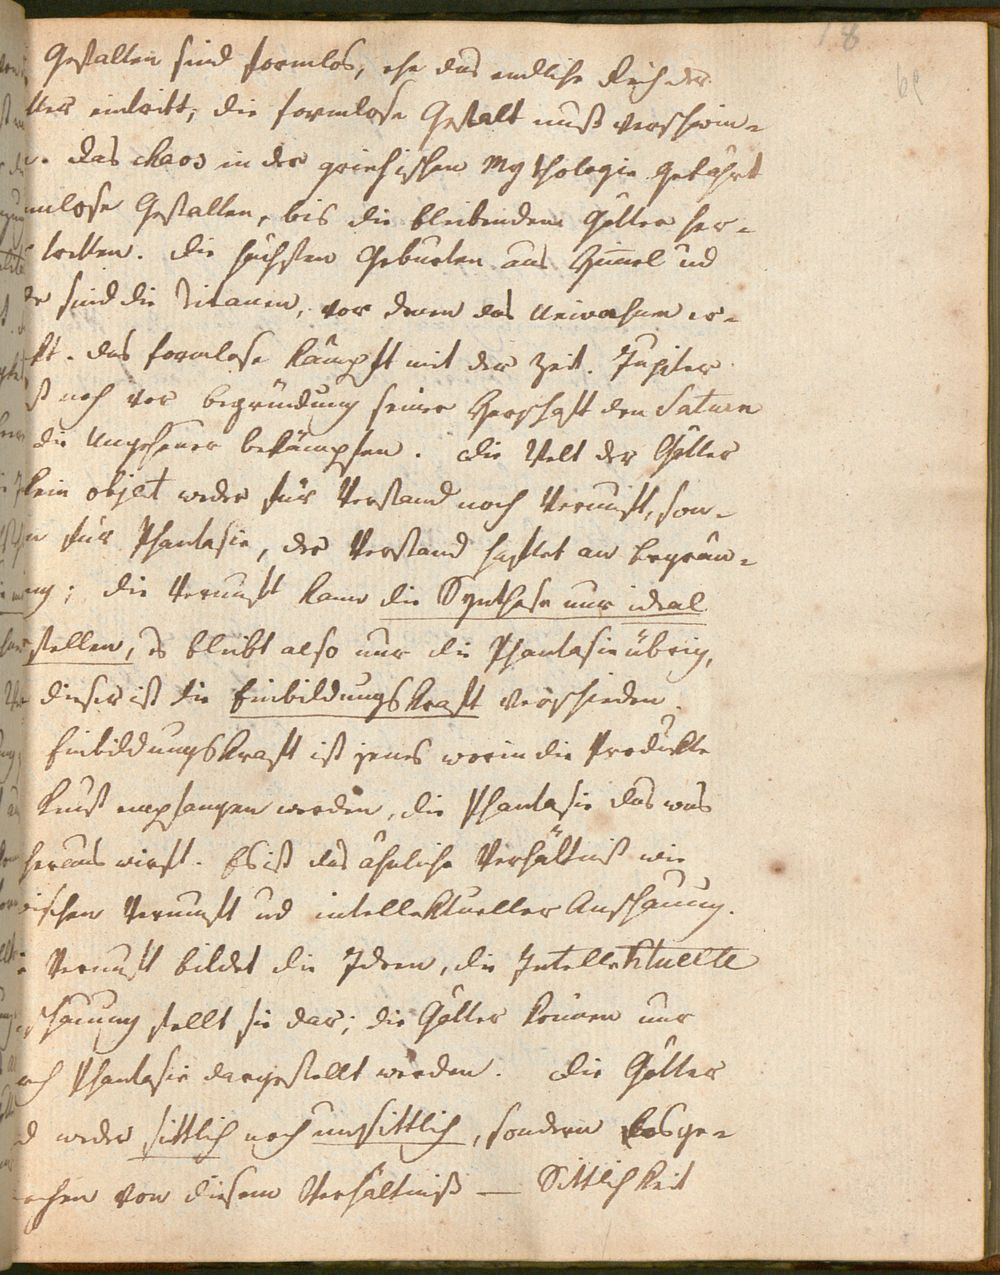 18
69
Gestalten sind formlos, ehe das endliche Reich der
tter eintritt, die formlose Gestalt muß verschwin-
n. Das Chaos in der griechischen Mythologie gebährt
rmlose Gestalten, bis die bleibenden Götter her-
tretten. Die höchsten Geburten aus Him̄el und
de sind die Titanen, vor denen das
kt. das formlose kämpft mit der Zeit. Jupiter
ß noch vor begründung seiner Herschaft den Saturn
die Ungeheuer bekämpfen. Die Welt der Götter
kein objet weder für Verstand noch Vernunft, son-
n für Phantasie, der Verstand haftet an begrän-
ng; die Vernunft kann die Synthese nur ideal
stellen, es bleibt also nur die Phantasie übrig,
dieser ist die Einbildungskraft verschieden.
Einbildungskraft ist jenes worin die Produkte
Kunst empfangen werden, die Phantasie das was
heraus wirft. Es ist das ähnliche Verhältniß wie
ischen Vernunft und intellektueller Anschauung.
e Vernunft bildet die Ideen, die Intellektuelle
schauung stellt sie dar; die Götter können nur
rch Phantasie dargestellt werden. Die Götter
d weder sittlich noch unsittlich, sondern losge-
ochen von diesem Verhältniß — Sittlichkeit